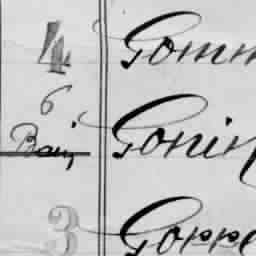 4 Gomm
6
Bai Gonin
3 Goppe